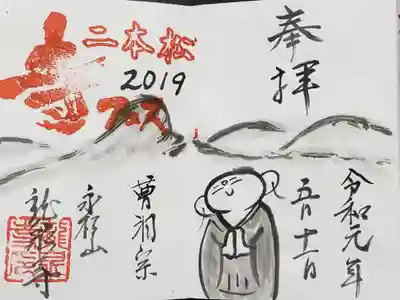 奉拝
令和元年
五月十一日
二本松
寺フェス
2019
曹洞宗
永松山
龍泉寺